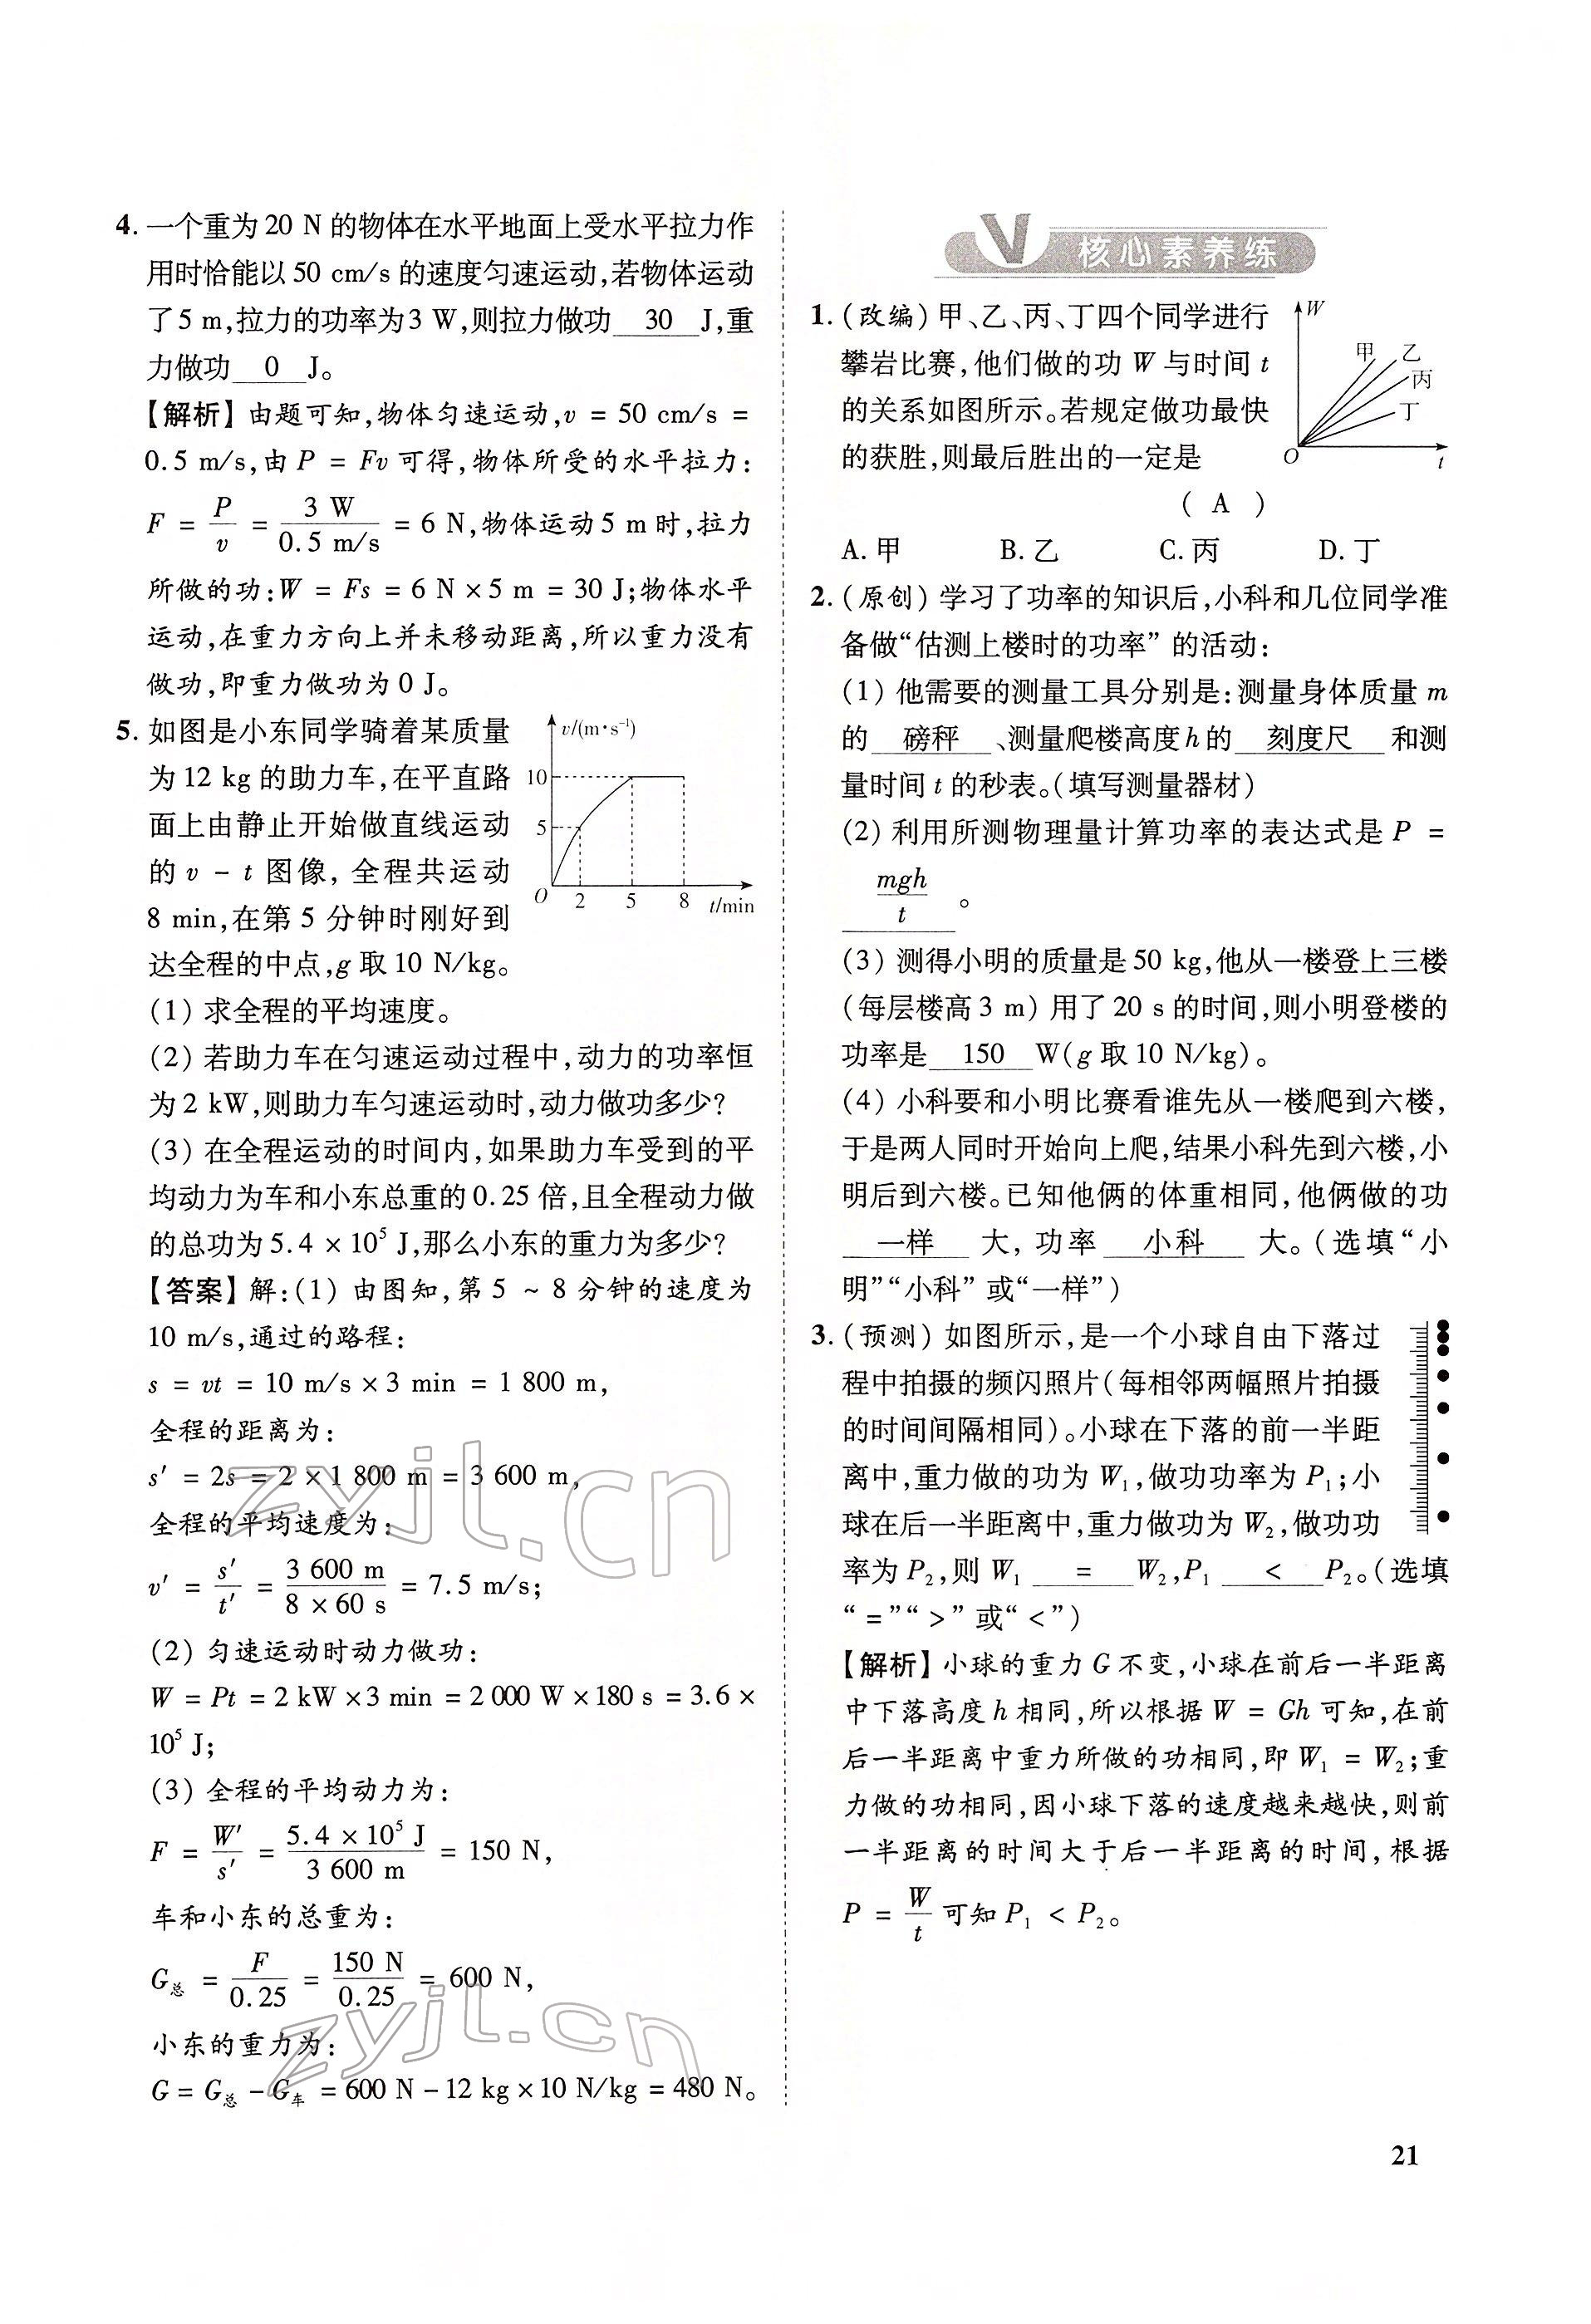 4. 一个重为 20 N 的物体在水平地面上受水平拉力作
用时恰能以 50 cm/s 的速度匀速运动,若物体运动
了 5 m,拉力的功率为 3 W,则拉力做功 30 J,重
力做功 0 J。
【解析】由题可知,物体匀速运动,v = 50 cm/s =
0.5 m/s,由 P = Fv 可得,物体所受的水平拉力:
F = P/v = 3 W/0.5 m/s = 6 N,物体运动 5 m 时,拉力
所做的功:W = Fs = 6 N × 5 m = 30 J;物体水平
运动,在重力方向上并未移动距离,所以重力没有
做功,即重力做功为 0 J。
5. 如图是小东同学骑着某质量
为 12 kg 的助力车,在平直路
面上由静止开始做直线运动
的 v - t 图像, 全程共运动
8 min,在第 5 分钟时刚好到
达全程的中点,g 取 10 N/kg。
v/(m·s⁻¹)
10
5
O 2 5 8 t/min
(1) 求全程的平均速度。
(2) 若助力车在匀速运动过程中,动力的功率恒
为 2 kW,则助力车匀速运动时,动力做功多少?
(3) 在全程运动的时间内,如果助力车受到的平
均动力为车和小东总重的 0.25 倍,且全程动力做
的总功为 5.4 × 10⁵ J,那么小东的重力为多少?
【答案】解:(1) 由图知,第 5 ~ 8 分钟的速度为
10 m/s,通过的路程:
s = vt = 10 m/s × 3 min = 1 800 m,
全程的距离为:
s′ = 2s = 2 × 1 800 m = 3 600 m,
全程的平均速度为:
v′ = s′/t′ = 3 600 m/8 × 60 s = 7.5 m/s;
(2) 匀速运动时动力做功:
W = Pt = 2 kW × 3 min = 2 000 W × 180 s = 3.6 ×
10⁵ J;
(3) 全程的平均动力为:
F = W′/s′ = 5.4 × 10⁵ J/3 600 m = 150 N,
车和小东的总重为:
G总 = F/0.25 = 150 N/0.25 = 600 N,
小东的重力为:
G = G总 - G车 = 600 N - 12 kg × 10 N/kg = 480 N。
V 核心素养练
1. (改编) 甲、乙、丙、丁四个同学进行
攀岩比赛,他们做的功 W 与时间 t
的关系如图所示。若规定做功最快
的获胜,则最后胜出的一定是
( A )
W
甲 乙
丙
丁
O t
A. 甲 B. 乙 C. 丙 D. 丁
2. (原创) 学习了功率的知识后,小科和几位同学准
备做“估测上楼时的功率” 的活动:
(1) 他需要的测量工具分别是:测量身体质量 m
的 磅秤 、测量爬楼高度 h 的 刻度尺 和测
量时间 t 的秒表。(填写测量器材)
(2) 利用所测物理量计算功率的表达式是 P =
mgh/t 。
(3) 测得小明的质量是 50 kg,他从一楼登上三楼
(每层楼高 3 m) 用了 20 s 的时间,则小明登楼的
功率是 150 W(g 取 10 N/kg)。
(4) 小科要和小明比赛看谁先从一楼爬到六楼,
于是两人同时开始向上爬,结果小科先到六楼,小
明后到六楼。已知他俩的体重相同, 他俩做的功
一样 大, 功率 小科 大。(选填“小
明”“小科” 或“一样”)
3. (预测) 如图所示,是一个小球自由下落过
程中拍摄的频闪照片(每相邻两幅照片拍摄
的时间间隔相同)。小球在下落的前一半距
离中,重力做的功为 W₁,做功功率为 P₁;小
球在后一半距离中,重力做功为 W₂,做功功
率为 P₂,则 W₁ = W₂,P₁ < P₂。(选填
“ = ”“ > ” 或“ < ”)
【解析】小球的重力 G 不变,小球在前后一半距离
中下落高度 h 相同,所以根据 W = Gh 可知,在前
后一半距离中重力所做的功相同,即 W₁ = W₂;重
力做的功相同,因小球下落的速度越来越快,则前
一半距离的时间大于后一半距离的时间,根据
P = W/t 可知 P₁ < P₂。
zyjl.cn
zyjl.cn
21